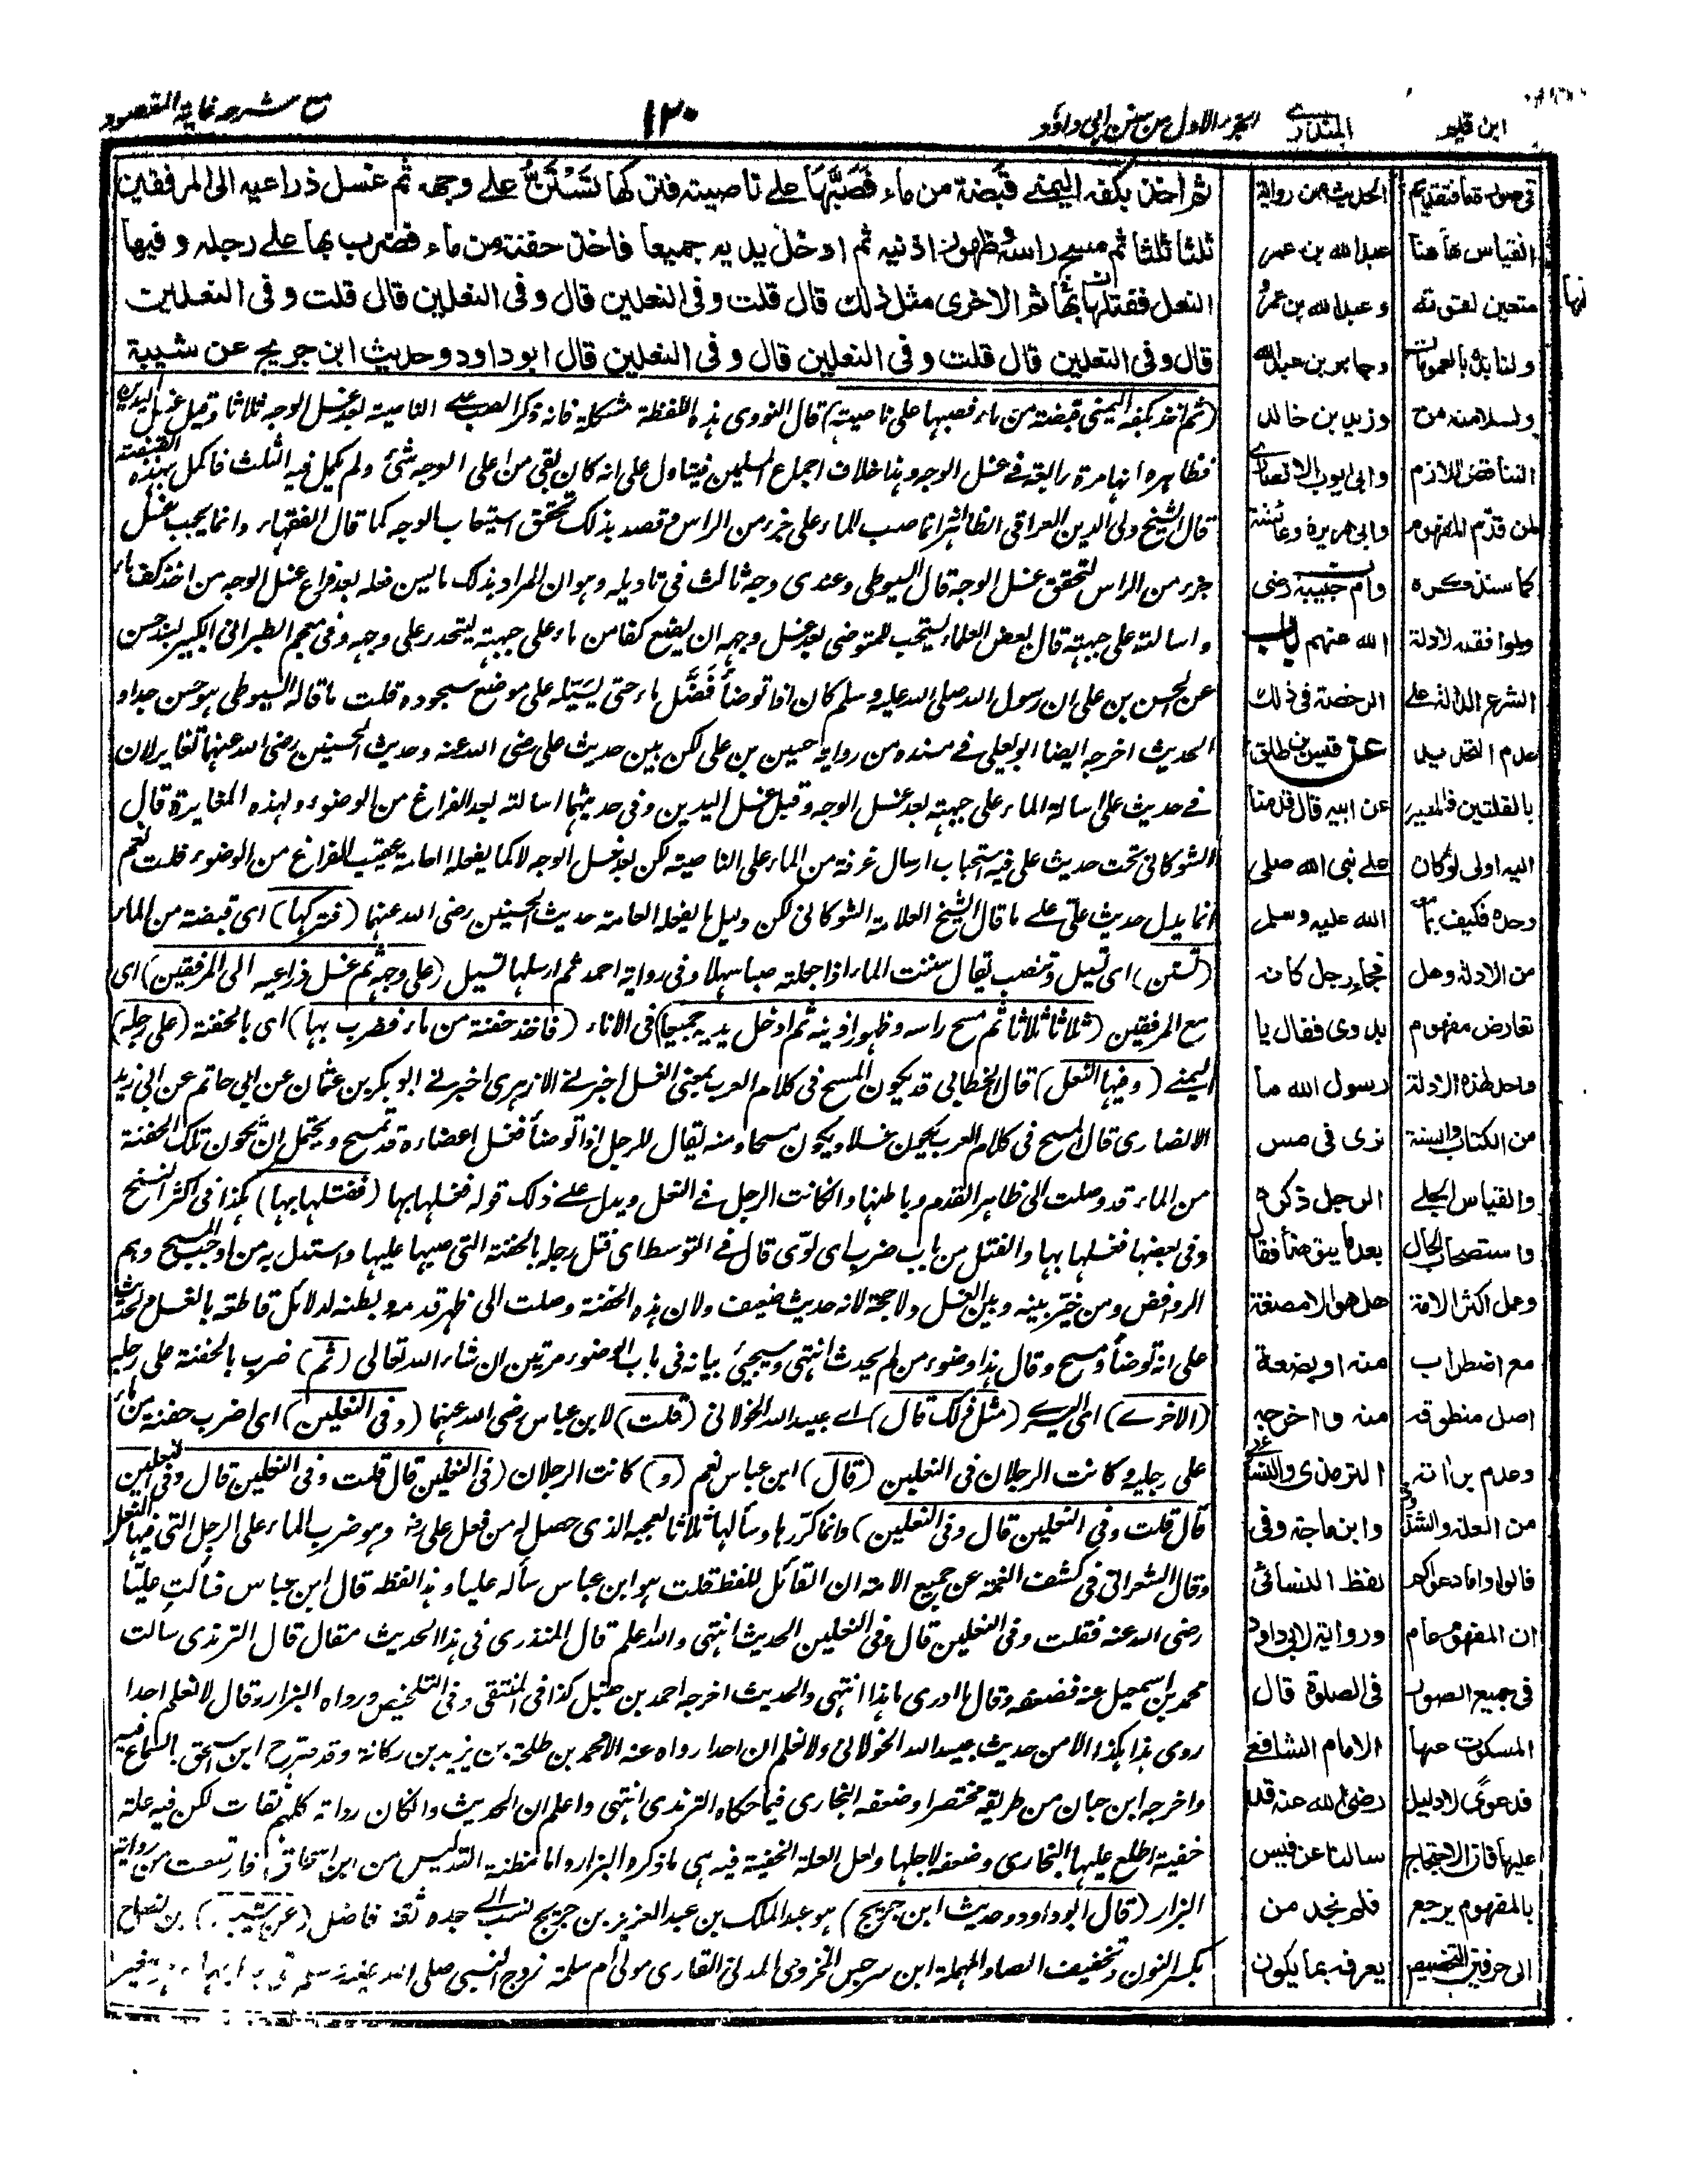 ابن قيم
المنذري
الجزء الاول من سنن ابی داود
١٢٠
مع شرحه غاية المقصود
ثم اخذ بكفه اليمنے قبضة من ماء فصبها علے ناصيته فتركها تستن علے وجهه ثم غسل ذراعيه الى المرفقين
ثلثا ثلثا ثم مسح راسه وظهور اذنيه ثم ادخل يديه جميعا فاخذ حفنة من ماء فضرب بها علے رجله وفيها
النعل ففتلها بها ثم الاخرى مثل ذلك قال قلت وفى النعلين قال وفى النعلين قال قلت وفى النعلين
قال وفى النعلين قال قلت وفى النعلين قال وفى النعلين قال ابو داود وحديث ابن جريج عن شيبة
(ثم اخذ بكفه اليمنى قبضة من ماء فصبها على ناصيته) قال النووى هذه اللفظة مشكلة فانه ذكر الصب على الناصية بعد غسل الوجه ثلاثا وقبل غسل اليدين
فظاهره انها مرة رابعة فے غسل الوجه وهذا خلاف اجماع المسلمين فيتاول على انه كان بقى من اعلى الوجه شئ ولم يكمل فيه الثلث فاكمل بهذه القبضة
قال الشيخ ولى الدين العراقى الظاهر انه انما صب الماء على جزء من الراس وقصد بذلك تحقق استيعاب الوجه كما قال الفقهاء وانما يجب غسل
جزء من الراس لتحقق غسل الوجه قال السيوطى وعندى وجه ثالث فى تاويله وهو ان المراد بذلك ما يسن فعله بعد فراغ غسل الوجه من اخذ كف ماء
واسالته على جبهته قال بعض العلماء يستحب للمتوضى بعد غسل وجهه ان يضع كفا من ماء على جبهته ليتحدر على وجهه وفى معجم الطبرانى الكبير بسند حسن
عن الحسن بن على ان رسول الله صلى الله عليه وسلم كان اذا توضأ فضل ماء حتى يسيله على موضع سجوده قلت ما قاله السيوطى هو حسن جدا و
الحديث اخرجه ايضا ابو يعلى فے مسنده من رواية حسين بن على لكن بين حديث على رضى الله عنه وحديث الحسنين رضى الله عنهما تغاير لان
فے حديث على اسالة الماء على جبهته بعد غسل الوجه وقبل غسل اليدين وفى حديثهما اسالته بعد الفراغ من الوضوء ولهذه المغايرة قال
الشوكانى تحت حديث على فيه استحباب ارسال غرفة من الماء على الناصية لكن بعد غسل الوجه لا كما يفعله العامة عقيب الفراغ من الوضوء قلت نعم
انما يدل حديث على علے ما قال الشيخ العلامة الشوكانى لكن دليل ما يفعله العامة حديث الحسنين رضى الله عنهما (فتركها) اى قبضة من الماء
(تستن) اى تسيل وتنصب يقال سننت الماء اذا جعلته صبا سهلا وفى رواية احمد ثم ارسلها تسيل (على وجهه ثم غسل ذراعيه الى المرفقين) اى
مع المرفقين (ثلاثا ثلاثا ثم مسح راسه وظهور اذنيه ثم ادخل يديه جميعا) فى الاناء (فاخذ حفنة من ماء فضرب بها) اى بالحفنة (على رجله)
اليمنے (وفيها النعل) قال الخطابى قد يكون المسح فى كلام العرب بمعنى الغسل اخبرنى الازهرى اخبرنے ابو بكر بن عثمان عن ابى حاتم عن ابى زيد
الانصارى قال المسح فى كلام العرب يكون غسلا ويكون مسحا ومنه يقال للرجل اذا توضأ فغسل اعضاءه قد تمسح ويحتمل ان تكون تلك الحفنة
من الماء قد وصلت الى ظاهر القدم وباطنها وان كانت الرجل فے النعل ويدل علے ذلك قوله فغسلها بها (ففتلها بها) هكذا فى اكثر النسخ
وفى بعضها فغسلها بها والفتل من باب ضرب اى لوى قال فے التوسط اى فتل رجله بالحفنة التى صبها عليها واستدل به من اوجب المسح وهم
الروافض ومن خير بينه وبين الغسل ولا حجة لانه حديث ضعيف ولان هذه الحفنة وصلت الى ظهر قدمه وبطنه لدلائل قاطعة بالغسل ولحديث
على انه توضأ ومسح وقال هذا وضوء من لم يحدث انتهى وسيجئ بيانه فى باب الوضوء مرتين ان شاء الله تعالى (ثم) ضرب بالحفنة على رجله
(الاخرے) اى اليسرى (مثل ذلك قال) اے عبيد الله الخولانى (قلت) لابن عباس رضى الله عنهما (وفى النعلين) اى اضرب حفنة من ماء
على رجليه وكانت الرجلان فى النعلين (قال) ابن عباس نعم (و) كانت الرجلان (فى النعلين قال قلت وفى النعلين قال وفى النعلين
قال قلت وفى النعلين قال وفى النعلين) وانما كررها وسألها ثلاثا لعجبه الذى حصل له من فعل على رضى وهو ضرب الماء على الرجل التى فيها النعل
وقال الشعرانى فى كشف الغمة عن جميع الامة ان القائل للفظ قلت هو ابن عباس سأله عليا وهذا لفظه قال ابن عباس فسألت عليا
رضى الله عنه فقلت وفى النعلين قال وفى النعلين الحديث انتهى والله اعلم قال المنذرى فى هذا الحديث مقال قال الترمذى سالت
محمد بن اسمعيل عنه فضعفه وقال ما ادرى ما هذا انتهى والحديث اخرجه احمد بن حنبل كذا فى المنتقى وفى التلخيص ورواه البزار وقال لا نعلم احدا
روى هذا هكذا الا من حديث عبيد الله الخولانى ولا نعلم ان احدا رواه عنه الا محمد بن طلحة بن يزيد بن ركانة وقد صرح ابن اسحق بالسماع فيه
واخرجه ابن حبان من طريقه مختصرا وضعفه البخارى فيما حكاه الترمذى انتهى واعلم ان الحديث وان كان رواته كلهم ثقات لكن فيه علة
خفية اطلع عليها البخارى وضعفه لاجلها ولعل العلة الخفية فيه هى ما ذكره البزار واما مظنة التدليس من ابن اسحاق فارتفعت من رواية
البزار (قال ابو داود وحديث ابن جريج) هو عبد الملك بن عبد العزيز بن جريج نسب الى جده ثقة فاضل (عن شيبة) بن نصاح
بكسر النون وتخفيف الصاد المهملة ابن سرجس المخزومى المدنى القارى مولى ام سلمة زوج النبى صلى الله عليه وسلم
الحديث من رواية
عبد الله بن عمر
وعبد الله بن عمرو
وجابر بن عبد الله
وزيد بن خالد
وابى ايوب الانصارى
وابى هريرة وعائشة
وام حبيبة رضى
الله عنهم باب
الرخصة فى ذلك
عن قيس بن طلق
عن ابيه قال قدمنا
علے نبى الله صلى
الله عليه وسلم
فجاء رجل كانه
بدوى فقال يا
رسول الله ما
ترى فى مس
الرجل ذكره
بعد ما يتوضأ فقال
هل هو الا مضغة
منه او بضعة
منه واخرجه
الترمذى والنسائى
وابن ماجة وفى
لفظ النسائى
ورواية لابى داود
فى الصلوة قال
الامام الشافعے
رضى الله عنه قد
سالنا عن قيس
فلم نجد من
يعرفه بما يكون
القياس هاهنا
متعين لقوته
ولتايده بالعمومات
ولسلامته من
التناقض اللازم
لمن قدم المفهوم
كما سنذكره
ولموافقته لادلة
الشرع الدالة على
عدم التحديد
بالقلتين فالمصير
اليه اولى لو كان
وحده فكيف بما
من الادلة وهل
تعارض مفهوم
واحد لهذه الادلة
من الكتاب والسنة
والقياس الجلے
واستصحاب الحال
وعمل اكثر الامة
مع اضطراب
اصل منطوقه
وعدم براءته
من العلة والشذوذ
قالوا واما دعواكم
ان المفهوم عام
فى جميع الصور
المسكوت عنها
فدعوى لا دليل
عليها فان الاحتجاج
بالمفهوم يرجع
الى حرفين التخصيص